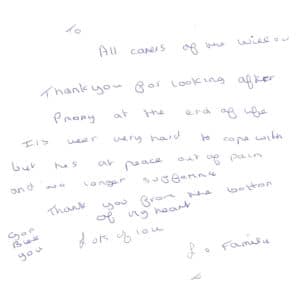 To
All carers of the Willow
Thankyou for looking after
at the end of life
very hard to cope with
but at peace out of pain
and no longer suffering
Thank you from the bottom
of my heart
God
Bless
you
Lots of love
Family